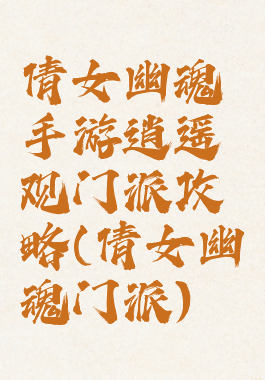 倩女幽魂
手游逍遥
观门派攻
略(倩女幽
魂门派)